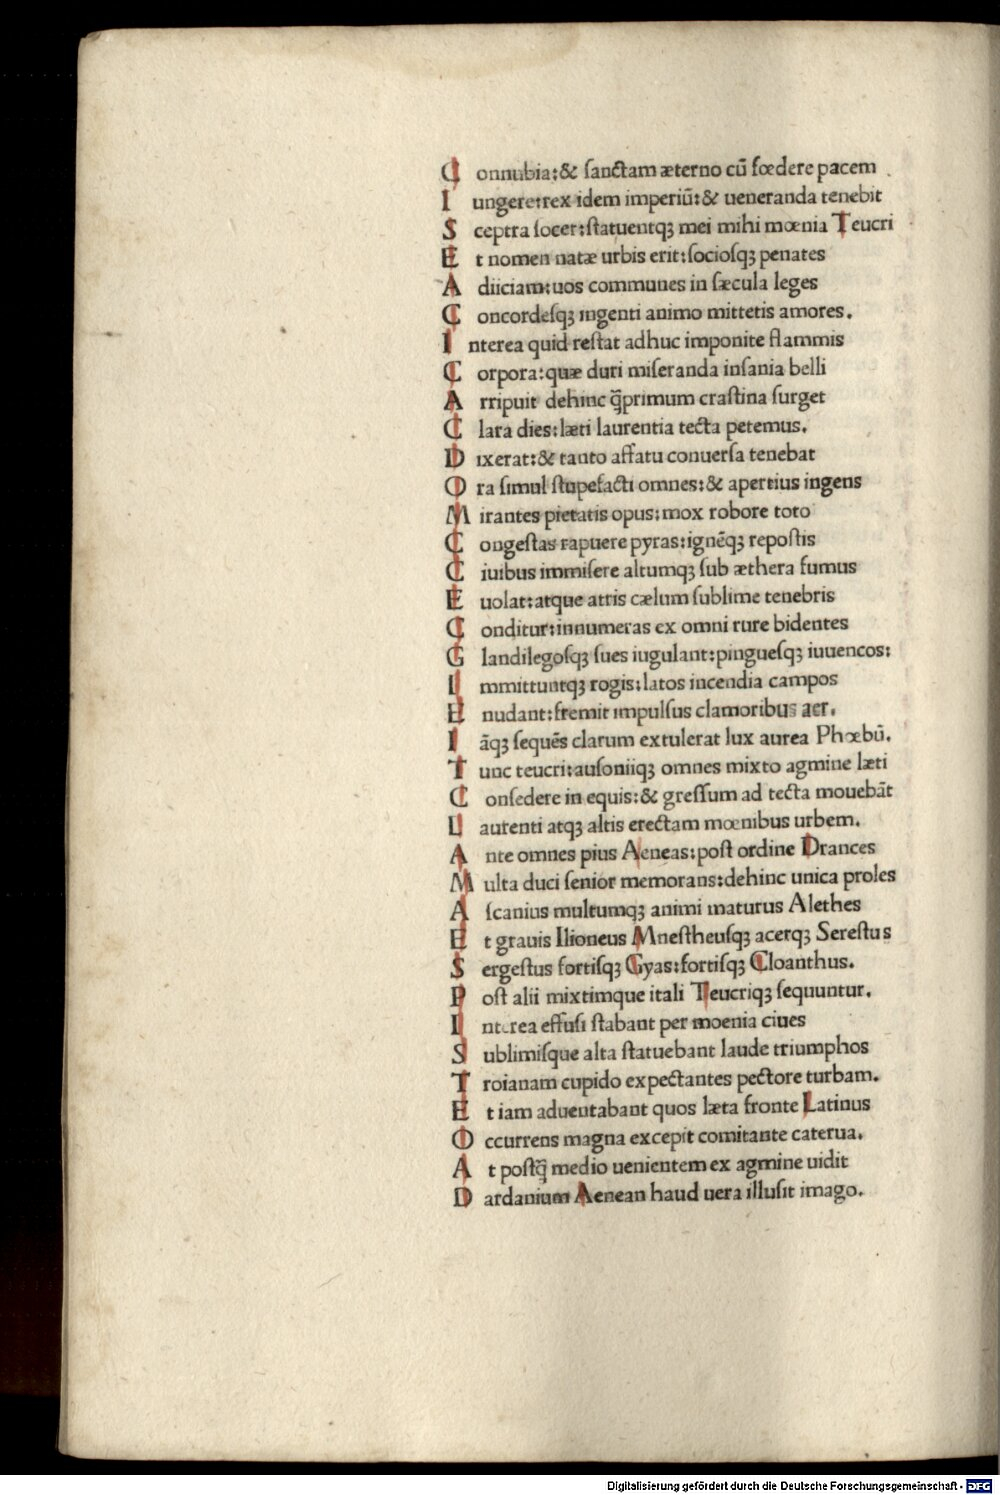 Connubia: & sanctam æterno cū fœdere pacem
Iungere: rex idem imperiū: & ueneranda tenebit
Sceptra socer: statuentqꝫ mei mihi mœnia Teucri
Et nomen natæ urbis erit: sociosqꝫ penates
Adiiciam: uos communes in sæcula leges
Concordesqꝫ ingenti animo mittetis amores.
Interea quid restat adhuc imponite flammis
Corpora: quæ duri miseranda insania belli
Arripuit dehinc q̄primum crastina surget
Clara dies: læti laurentia tecta petemus.
Dixerat: & tanto affatu conuersa tenebat
Ora simul stupefacti omnes: & apertius ingens
Mirantes pietatis opus: mox robore toto
Congestas rapuere pyras: ignēqꝫ repostis
Ciuibus immisere altumqꝫ sub æthera fumus
Euolat: atque atris cælum sublime tenebris
Conditur: innumeras ex omni rure bidentes
Glandilegosqꝫ sues iugulant: pinguesqꝫ iuuencos:
Immittuntqꝫ rogis: latos incendia campos
Enudant: fremit impulsus clamoribus aer.
Iāqꝫ sequēs clarum extulerat lux aurea Phœbū.
Tunc teucri: ausoniiqꝫ omnes mixto agmine læti
Consedere in equis: & gressum ad tecta mouebāt
Laurenti atqꝫ altis erectam mœnibus urbem.
Ante omnes pius Aeneas: post ordine Drances
Multa duci senior memorans: dehinc unica proles
Ascanius multumqꝫ animi maturus Alethes
Et grauis Ilioneus Mnestheusqꝫ acerqꝫ Serestus
Sergestus fortisqꝫ Gyas: fortisqꝫ Cloanthus.
Post alii mixtimque itali Teucriqꝫ sequuntur.
Interea effusi stabant per moenia ciues
Sublimisque alta statuebant laude triumphos
Troianam cupido expectantes pectore turbam.
Et iam aduentabant quos læta fronte Latinus
Occurrens magna excepit comitante caterua.
At postq̄ medio uenientem ex agmine uidit
Dardanium Aenean haud uera illusit imago.
Digitalisierung gefördert durch die Deutsche Forschungsgemeinschaft - DFG